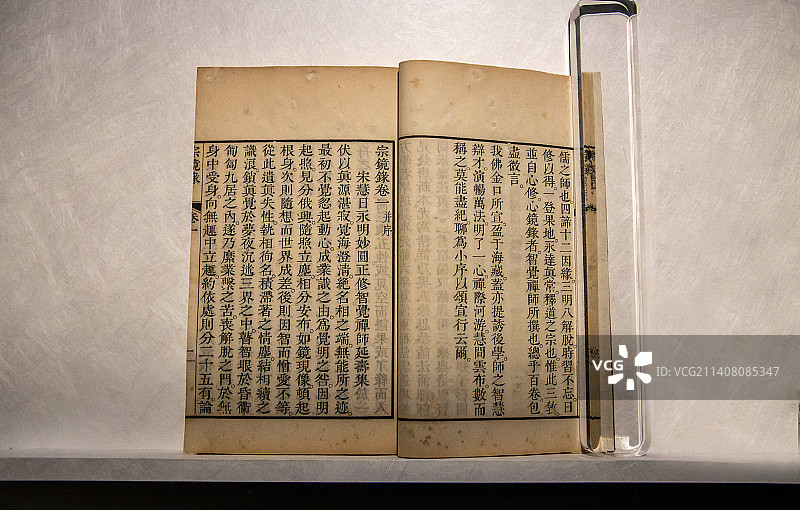 儒之師也四諦十二因緣三明八解脫時習不忘日
修以得一登果地永達眞常釋道之宗也惟此三敎
並自心修心鏡錄者智覺禪師所撰也總乎百卷包
盡微言
我佛金口所宣盈于海藏蓋亦提誘後學師之智慧
辯才演暢萬法明了一心禪際河游慧間雲布數而
稱之莫能盡紀聊爲小序以頌宣行云爾
宗鏡錄卷一 并序
宋慧日永明妙圓正修智覺禪師延壽集
伏以眞源湛寂覺海澄淸絶名相之端無能所之迹
最初不覺忽起動心成業識之由爲覺明之咎因明
起照見分俄興隨照立塵相分安布如鏡現像頓起
根身次則隨想而世界成差後則因智而憎愛不等
從此遺眞失性執相徇名積滯著之情塵結相續之
識浪鎖眞覺於夢夜沉迷三界之中瞽智眼於昏衢
匍匐九居之內遂乃縻業繫之苦喪解脫之門於無
身中受身向無趣中立趣約依處則分二十五有論
宗鏡錄
卷一
二
VCG
ID: VCG211408085347